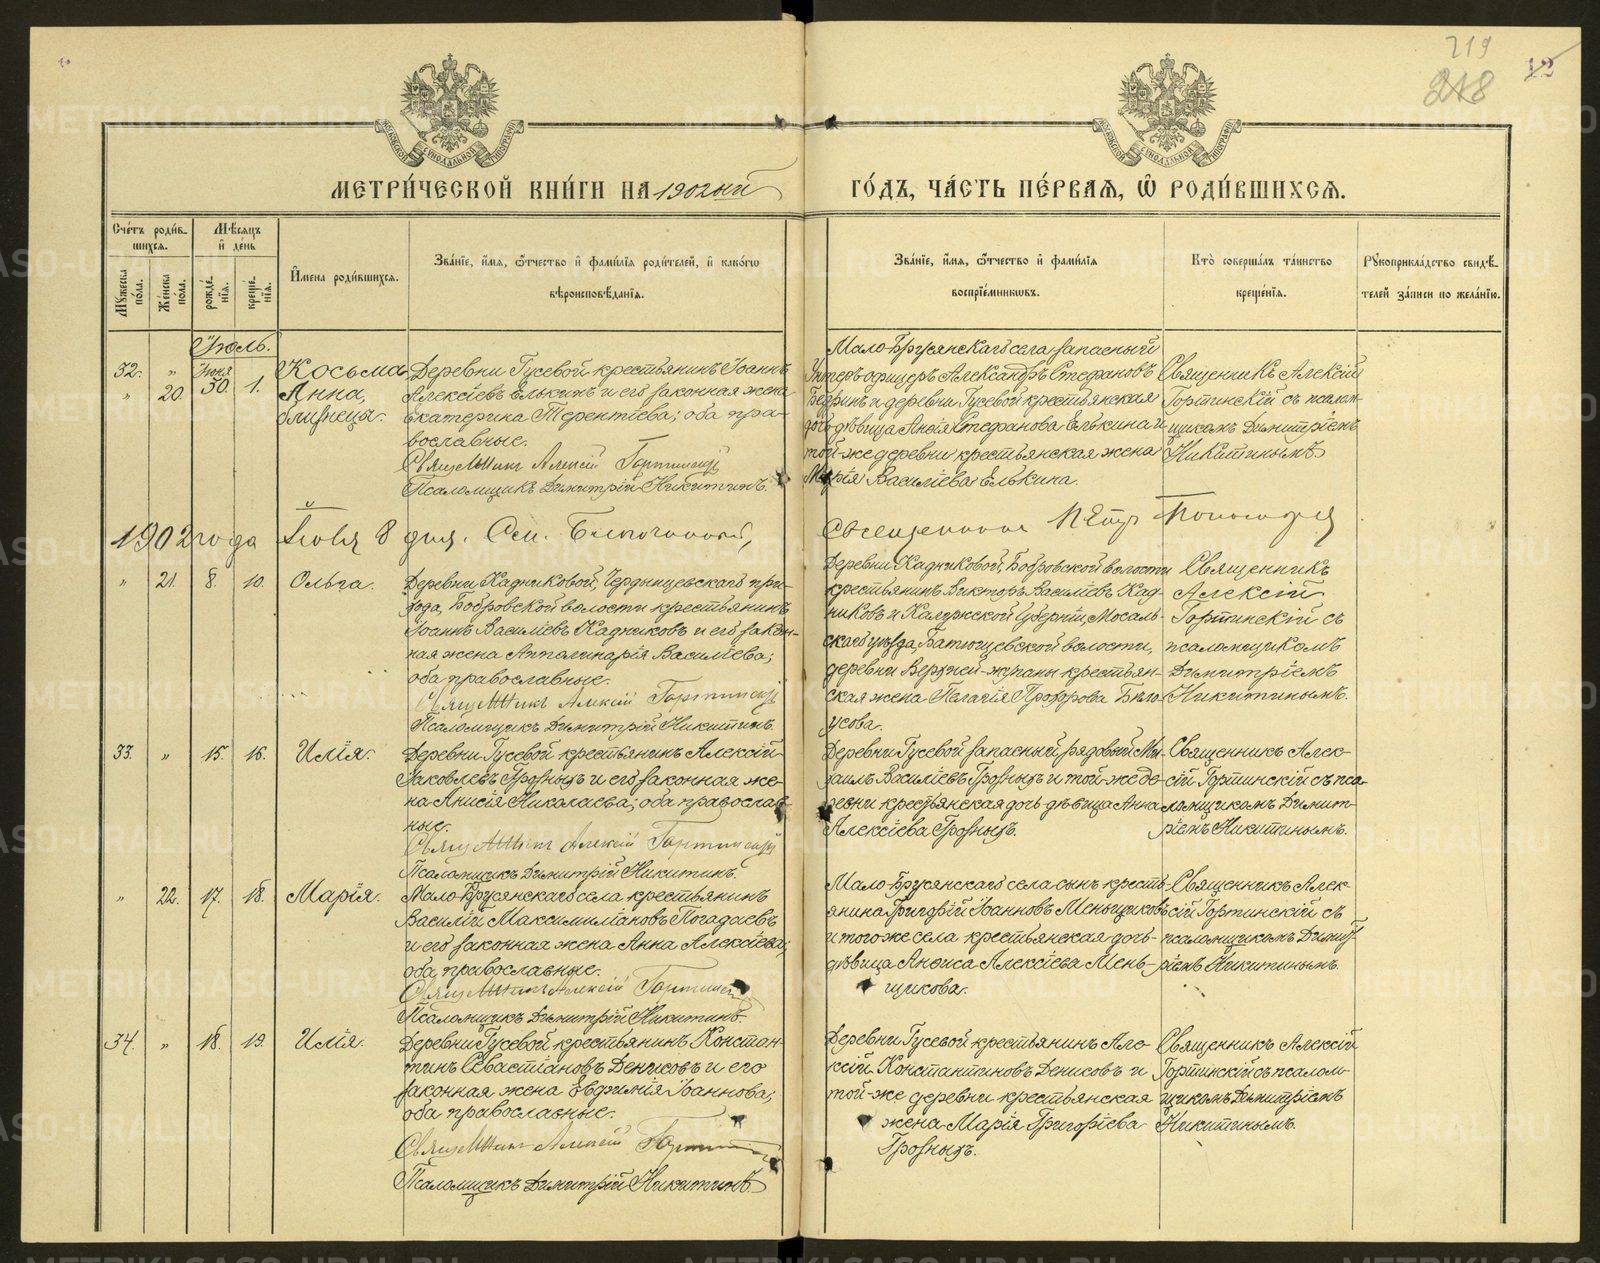 219
218
12
МОСКОВСКОЙ СѴНОДАЛЬНОЙ ТИПОГРАФІИ
МОСКОВСКОЙ СѴНОДАЛЬНОЙ ТИПОГРАФІИ
МЕТРИ́ЧЕСКОЙ КНИ́ГИ НА 1902ый
ГО́ДЪ, ЧА́СТЬ ПЕ́РВАѦ, Ѿ РОДИ́ВШИХСѦ.
Сче́тъ роди́в-
шихсѧ.
Мꙋ́жеска по́ла.
Же́нска по́ла.
Мѣ́сѧцъ
и҆ де́нь
рожде́-
нїѧ.
креще́-
нїѧ.
И҆мена роди́вшихсѧ.
Зва́нїе, и҆́мѧ, ѻ҆́тчество и҆ фами́лїѧ роди́телей, и҆ како́гѡ
вѣроисповѣ́данїѧ.
Зва́нїе, и҆́мѧ, ѻ҆́тчество и҆ фами́лїѧ
воспрїе́мникѡвъ.
Кто̀ соверша́лъ та́инство
креще́нїѧ.
Рꙋкоприкла́дство свидѣ́-
телей за́писи по жела́нїю.
Іюль.
32. " Іюня 30. 1. Косьма
" 20. Анна,
близнецы.
Деревни Гусевой крестьянинъ Іоаннъ
Алексіевъ Елькинъ и его законная жена
Екатерина Терентіева; оба пра-
вославные.
Священникъ Алексій Гортинскій
Псаломщикъ Димитрій Никитинъ.
Мало-Брусянскаго села запасный
Унтеръ-офицеръ Александръ Стефановъ
и деревни Гусевой крестьянская
дочь-дѣвица Стефанова Елькина и
той-же деревни крестьянская жена
Марія Василіева Елькина.
Священникъ Алексій
Гортинскій съ псалом-
щикомъ Димитріемъ
Никитинымъ
1902 года Іюля 8 дня. См.
Священник Петр
" 21. 8. 10. Ольга.
Деревни Кадниковой, при-
хода, Бобровской волости крестьянинъ
Іоаннъ Василіевъ Кадниковъ и его закон-
ная жена Апполинарія Василіева;
оба православные.
Священникъ Алексій Гортинскій
Псаломщикъ Димитрій Никитинъ.
Деревни Кадниковой, Бобровской волости
крестьянинъ Викторъ Василіевъ Кад-
никовъ и Калужской Губерніи, Мосаль-
скаго уѣзда, волости,
деревни Верхней- крестьян-
ская жена Пелагія Прохорова Бѣло-
усова.
Священникъ
Алексій
Гортинскій съ
псаломщикомъ
Димитріемъ
Никитинымъ.
33. " 15. 16. Илія.
Деревни Гусевой крестьянинъ Алексій
Іаковлевъ Грозныхъ и его законная же-
на Анисія Николаева; оба православ-
ные.
Священникъ Алексій Гортинскій
Псаломщикъ Димитрій Никитинъ.
Деревни Гусевой запасный рядовой Ми-
хаилъ Василіевъ Грозныхъ и той-же де-
ревни крестьянская дочь-дѣвица Анна
Алексіева Грозныхъ.
Священникъ Алек-
сій Гортинскій съ пса-
ломщикомъ Димит-
ріемъ Никитинымъ.
" 22. 17. 18. Марія.
Мало-Брусянскаго села крестьянинъ
Василій Максимиліановъ Погадаевъ
и его законная жена Анна Алексіева;
оба православные.
Священникъ Алексій Гортинскій
Псаломщикъ Димитрій Никитинъ.
Мало-Брусянскаго села сынъ кресть-
янина Григорій Іоанновъ Меньщиковъ
и того же села крестьянская дочь-
дѣвица Анфиса Алексіева Мень-
щикова.
Священникъ Алек-
сій Гортинскій съ
псаломщикомъ Димит-
ріемъ Никитинымъ.
34. " 18. 19. Илія.
Деревни Гусевой крестьянинъ Констан-
тинъ Севастіановъ Денисовъ и его
законная жена Евфимія Іоаннова;
оба православные.
Священникъ Алексій
Псаломщикъ Димитрій Никитинъ
Деревни Гусевой крестьянинъ Але-
ксій Константиновъ Денисовъ и
той-же деревни крестьянская
жена Марія Григоріева
Грозныхъ.
Священникъ Алексій
Гортинскій съ псалом-
щикомъ Димитріемъ
Никитинымъ.
METRIKI.GASO-URAL.RU